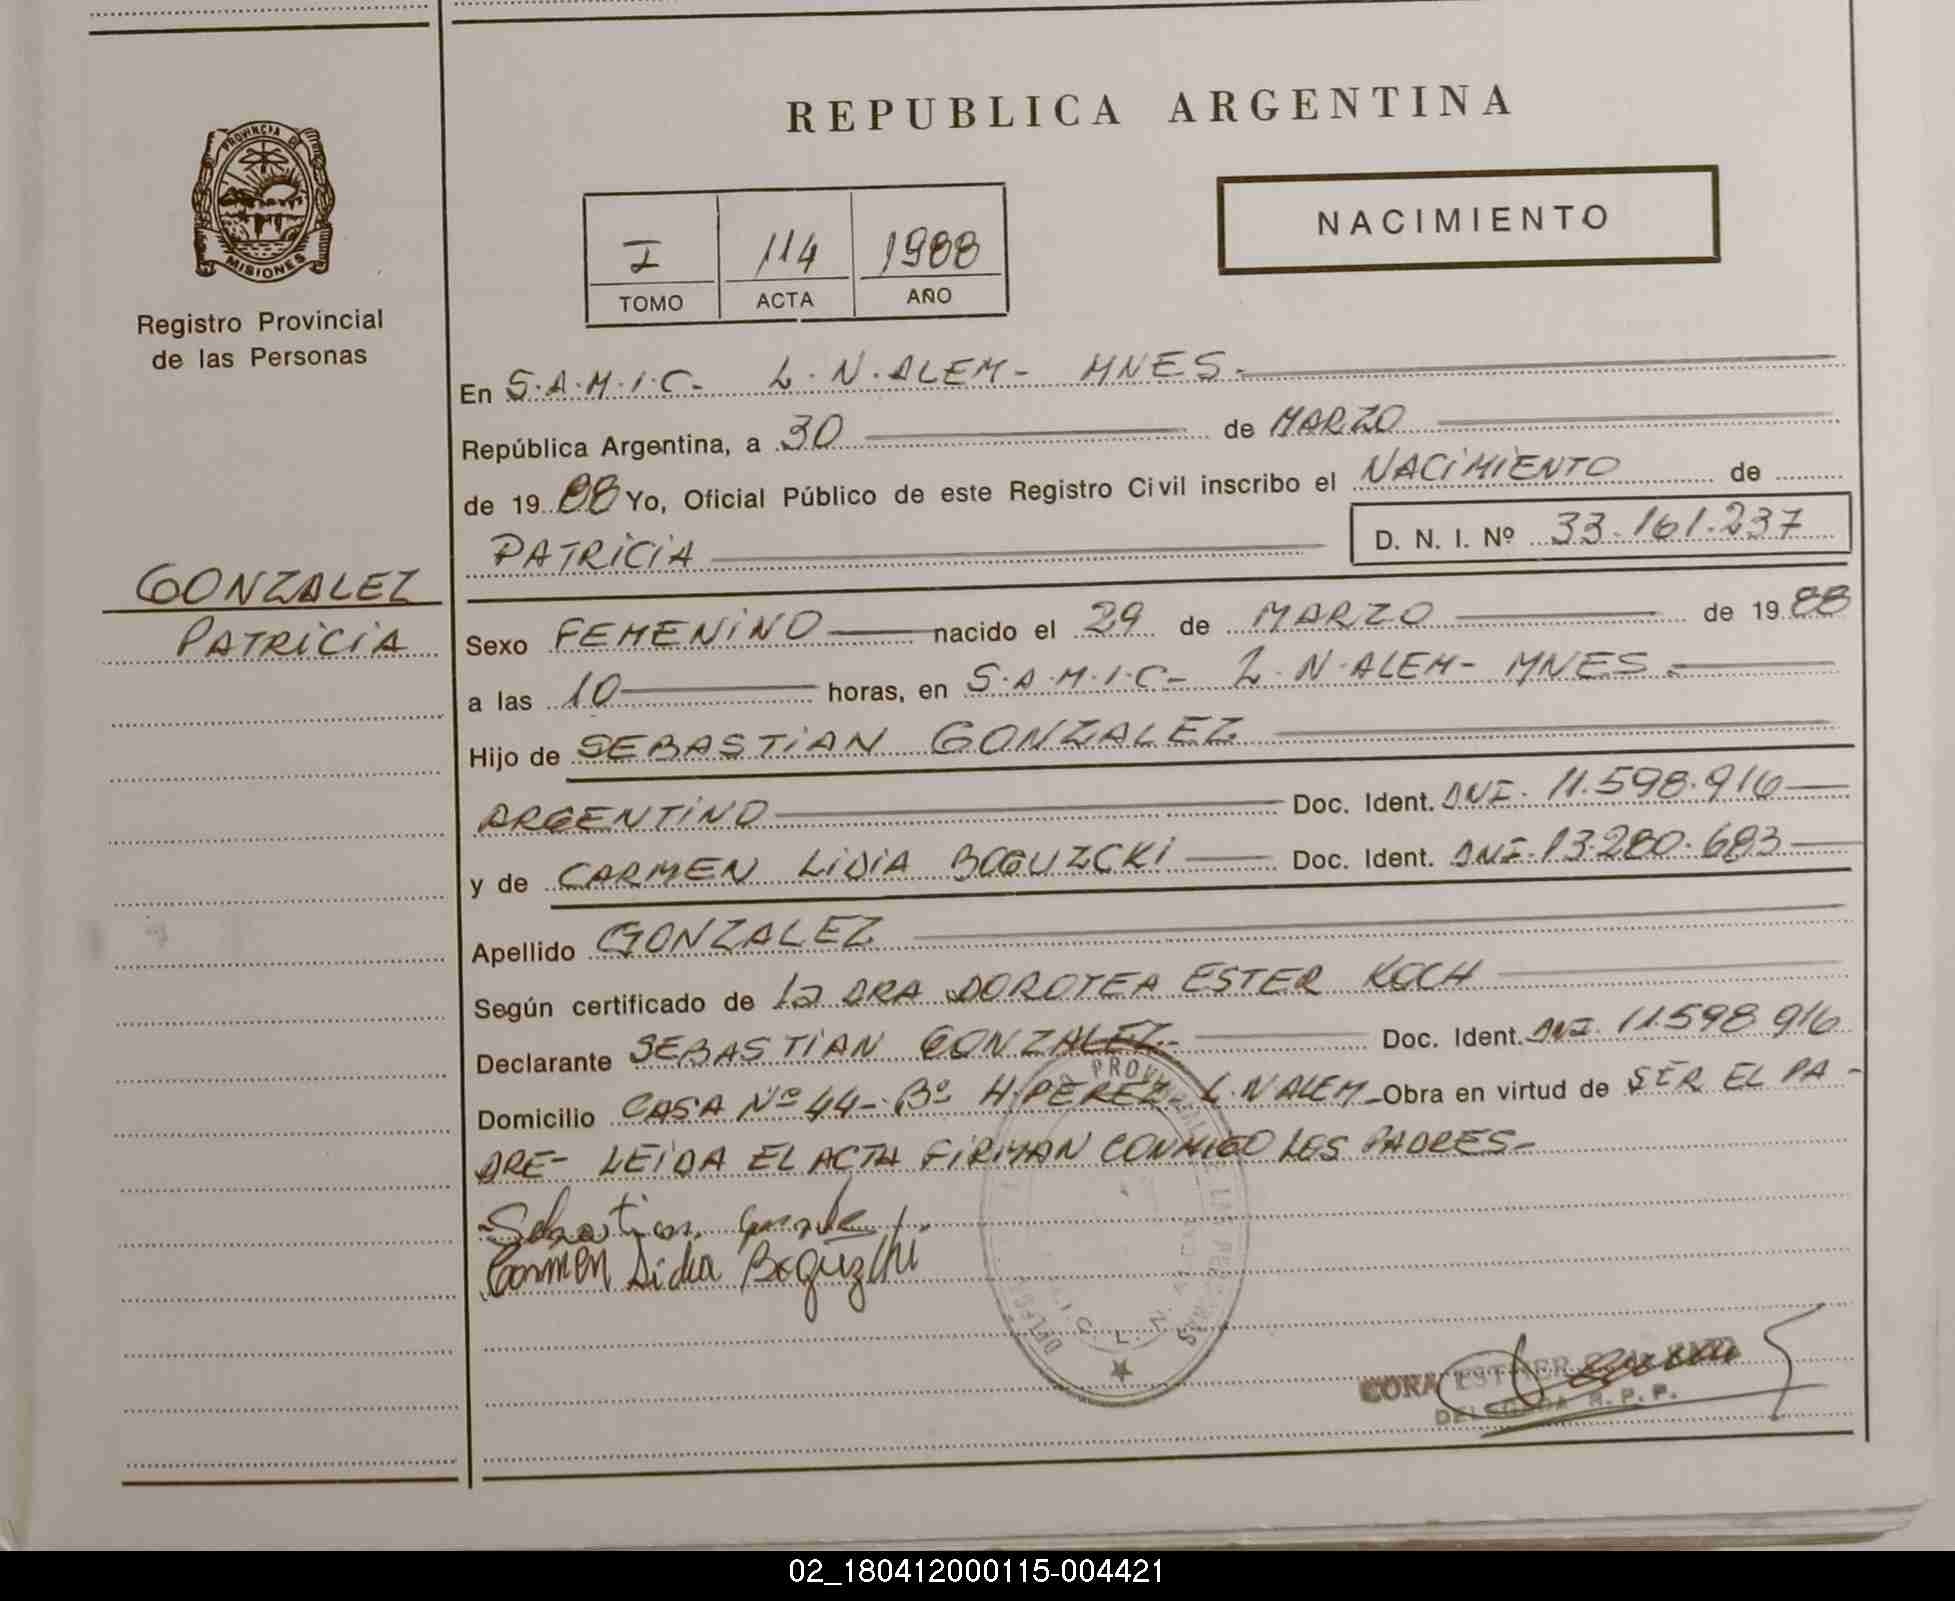 REPUBLICA ARGENTINA
PROVINCIA DE
MISIONES
Registro Provincial
de las Personas
NACIMIENTO
I 114 1988
TOMO ACTA AÑO
En S.A.M.I.C- L.N.ALEM- MNES.-
República Argentina, a 30 de MARZO
de 19 88 Yo, Oficial Público de este Registro Civil inscribo el NACIMIENTO de
PATRICIA D. N. I. Nº 33.161.237
GONZALEZ
PATRICIA
Sexo FEMENINO nacido el 29 de MARZO de 19 88
a las 10 horas, en S.A.M.I.C- L.N.ALEM- MNES.-
Hijo de SEBASTIAN GONZALEZ
ARGENTINO Doc. Ident. DNI. 11.598.916
y de CARMEN LIDIA BOGUZCKI Doc. Ident. DNI-13.280.683
Apellido GONZALEZ
Según certificado de la DRA DOROTEA ESTER KOCH
Declarante SEBASTIAN GONZALEZ- Doc. Ident. DNI. 11.598 916
Domicilio CASA Nº 44- Bº H.PEREZ- L.N ALEM- Obra en virtud de SER EL PA-
DRE- LEIDA EL ACTA FIRMAN CONMIGO LOS PADRES-
Sebastian
Carmen Lidia
CORA ESTHER
DELEGADA R.P.P.
02_180412000115-004421